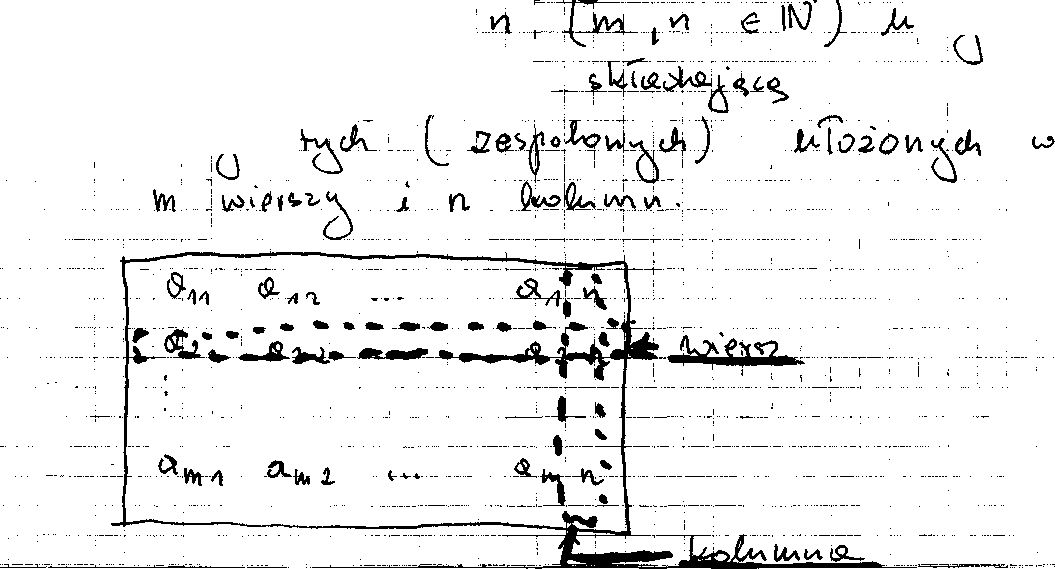 n, (m, n ∈ ℕ) u
składającą
tych (zespolonych) ułożonych w
m wierszy i n kolumn.
a₁₁ a₁₂ ... a₁ n
a₂ a₂₂ a₂ n ← wiersz
⋮
aₘ₁ aₘ₂ ... aₘ n
kolumna